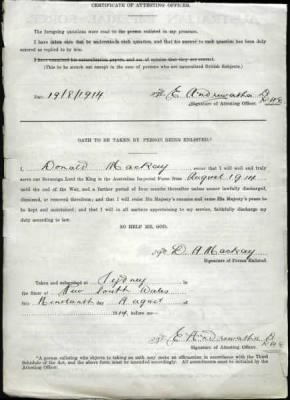 CERTIFICATE OF ATTESTING OFFICER.
The foregoing questions were read to the person enlisted in my presence.
I have taken care that he understands each question, and that his answer to each question has been duly
entered as replied to by him.
I have examined his naturalization papers, and am of opinion that they are correct.
(This to be struck out except in the case of persons who are naturalized British Subjects.)
Date 19/8/1914
(Signature of Attesting Officer.)
OATH TO BE TAKEN BY PERSON BEING ENLISTED.*
I, Donald Mackay swear that I will well and truly
serve our Sovereign Lord the King in the Australian Imperial Force from August 1914
until the end of the War, and a further period of four months thereafter unless sooner lawfully discharged,
dismissed, or removed therefrom; and that I will resist His Majesty's enemies and cause His Majesty's peace to
be kept and maintained; and that I will in all matters appertaining to my service, faithfully discharge my
duty according to law.
SO HELP ME, GOD.
D. A Mackay
Signature of Person Enlisted.
Taken and subscribed at Sydney
in the State of New South Wales
this Nineteenth day August
1914, before me—
Signature of Attesting Officer.
*A person enlisting who objects to taking an oath may make an affirmation in accordance with the Third
Schedule of the Act, and the above form must be amended accordingly. All amendments must be initialed by the
Attesting Officer.